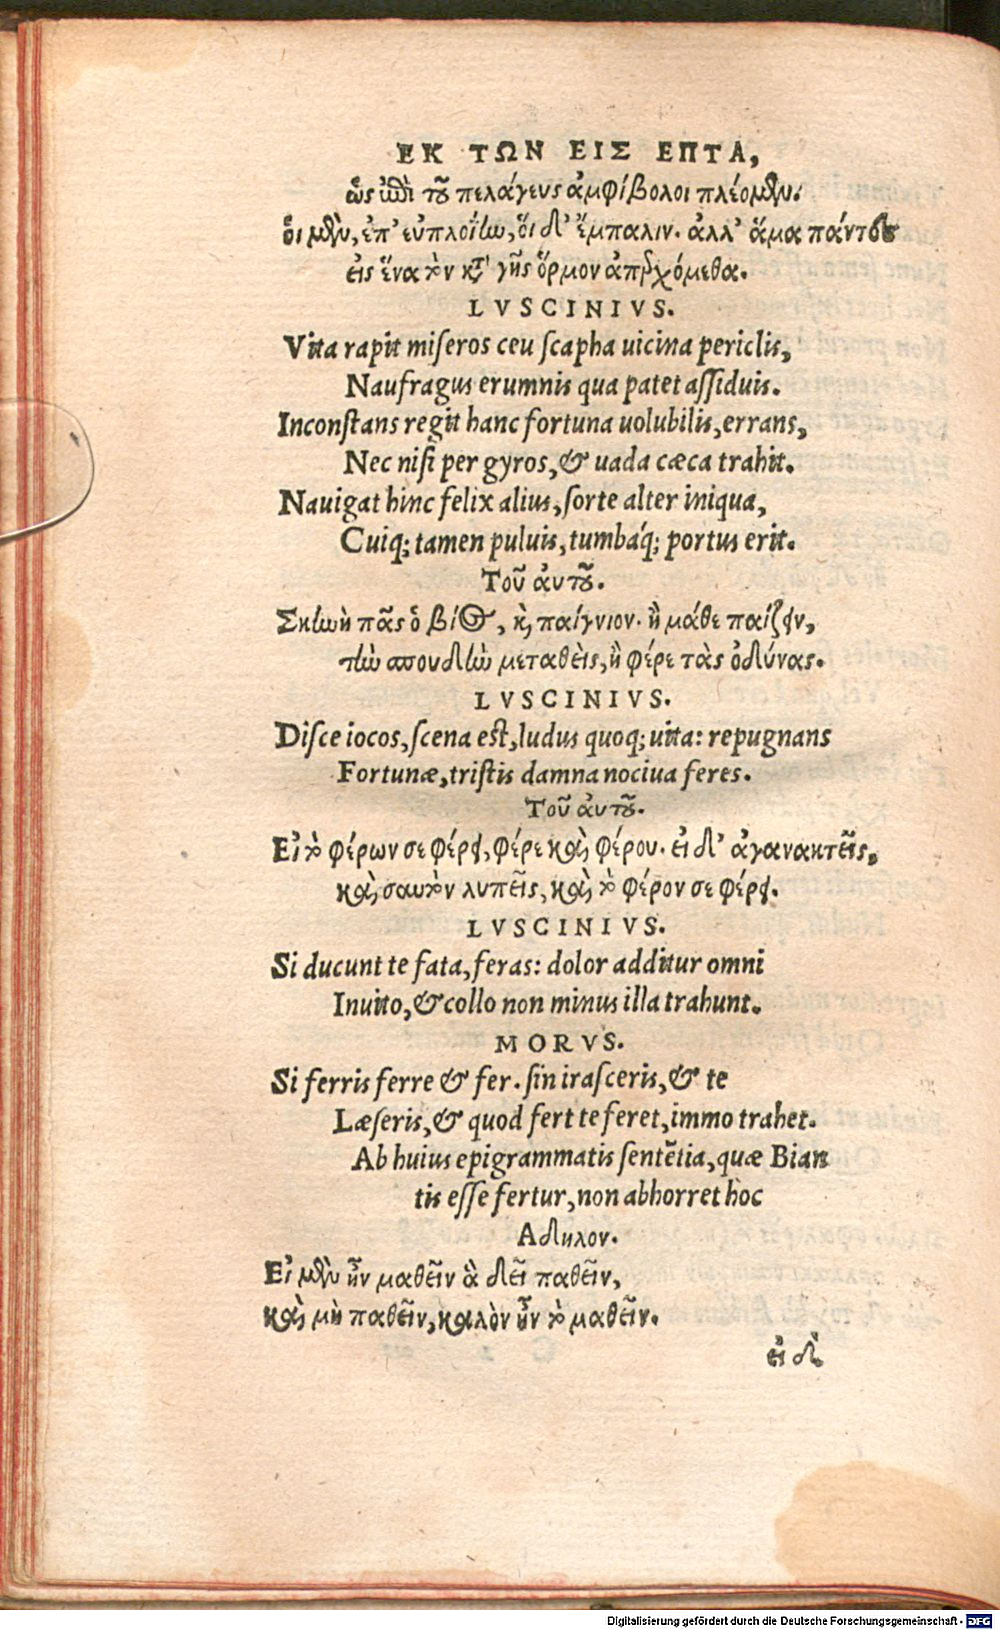 ΕΚ ΤΩΝ ΕΙΣ ΕΠΤΑ,
ὡς ἐπὶ τοῦ πελάγευς ἀμφίβολοι πλέομεν.
οἱ μὲν, ἐπ' εὐπλοΐην, οἱ δ' ἔμπαλιν. ἀλλ' ἅμα πάντες
εἰς ἕνα τὸν κατὰ γῆς ὅρμον ἀπερχόμεθα.
LVSCINIVS.
Vita rapit miseros ceu scapha uicina periclis,
Naufragus erumnis qua patet assiduis.
Inconstans regit hanc fortuna uolubilis, errans,
Nec nisi per gyros, & uada cæca trahit.
Nauigat hinc felix alius, sorte alter iniqua,
Cuiq; tamen puluis, tumbáq; portus erit.
Τοῦ ἀυτοῦ.
Σκηνὴ πᾶς ὁ βίος, καὶ παίγνιον. ἢ μάθε παίζειν,
τὴν σπουδὴν μεταθεὶς, ἢ φέρε τὰς ὀδύνας.
LVSCINIVS.
Disce iocos, scena est, ludus quoq; uita: repugnans
Fortunæ, tristis damna nociua feres.
Τοῦ ἀυτοῦ.
Εἰ τὸ φέρων σε φέρει, φέρε καὶ φέρου. εἰ δ' ἀγανακτεῖς,
καὶ σαυτὸν λυπεῖς, καὶ τὸ φέρον σε φέρει.
LVSCINIVS.
Si ducunt te fata, feras: dolor additur omni
Inuito, & collo non minus illa trahunt.
MORVS.
Si ferris ferre & fer. sin irasceris, & te
Læseris, & quod fert te feret, immo trahet.
Ab huius epigrammatis sentẽtia, quæ Bian
tis esse fertur, non abhorret hoc
Αδηλον.
Εἰ μὲν ἦν μαθεῖν ἃ δεῖ παθεῖν,
καὶ μὴ παθεῖν, καλὸν ἦν τὸ μαθεῖν.
εἰ δὲ
Digitalisierung gefördert durch die Deutsche Forschungsgemeinschaft - DFG